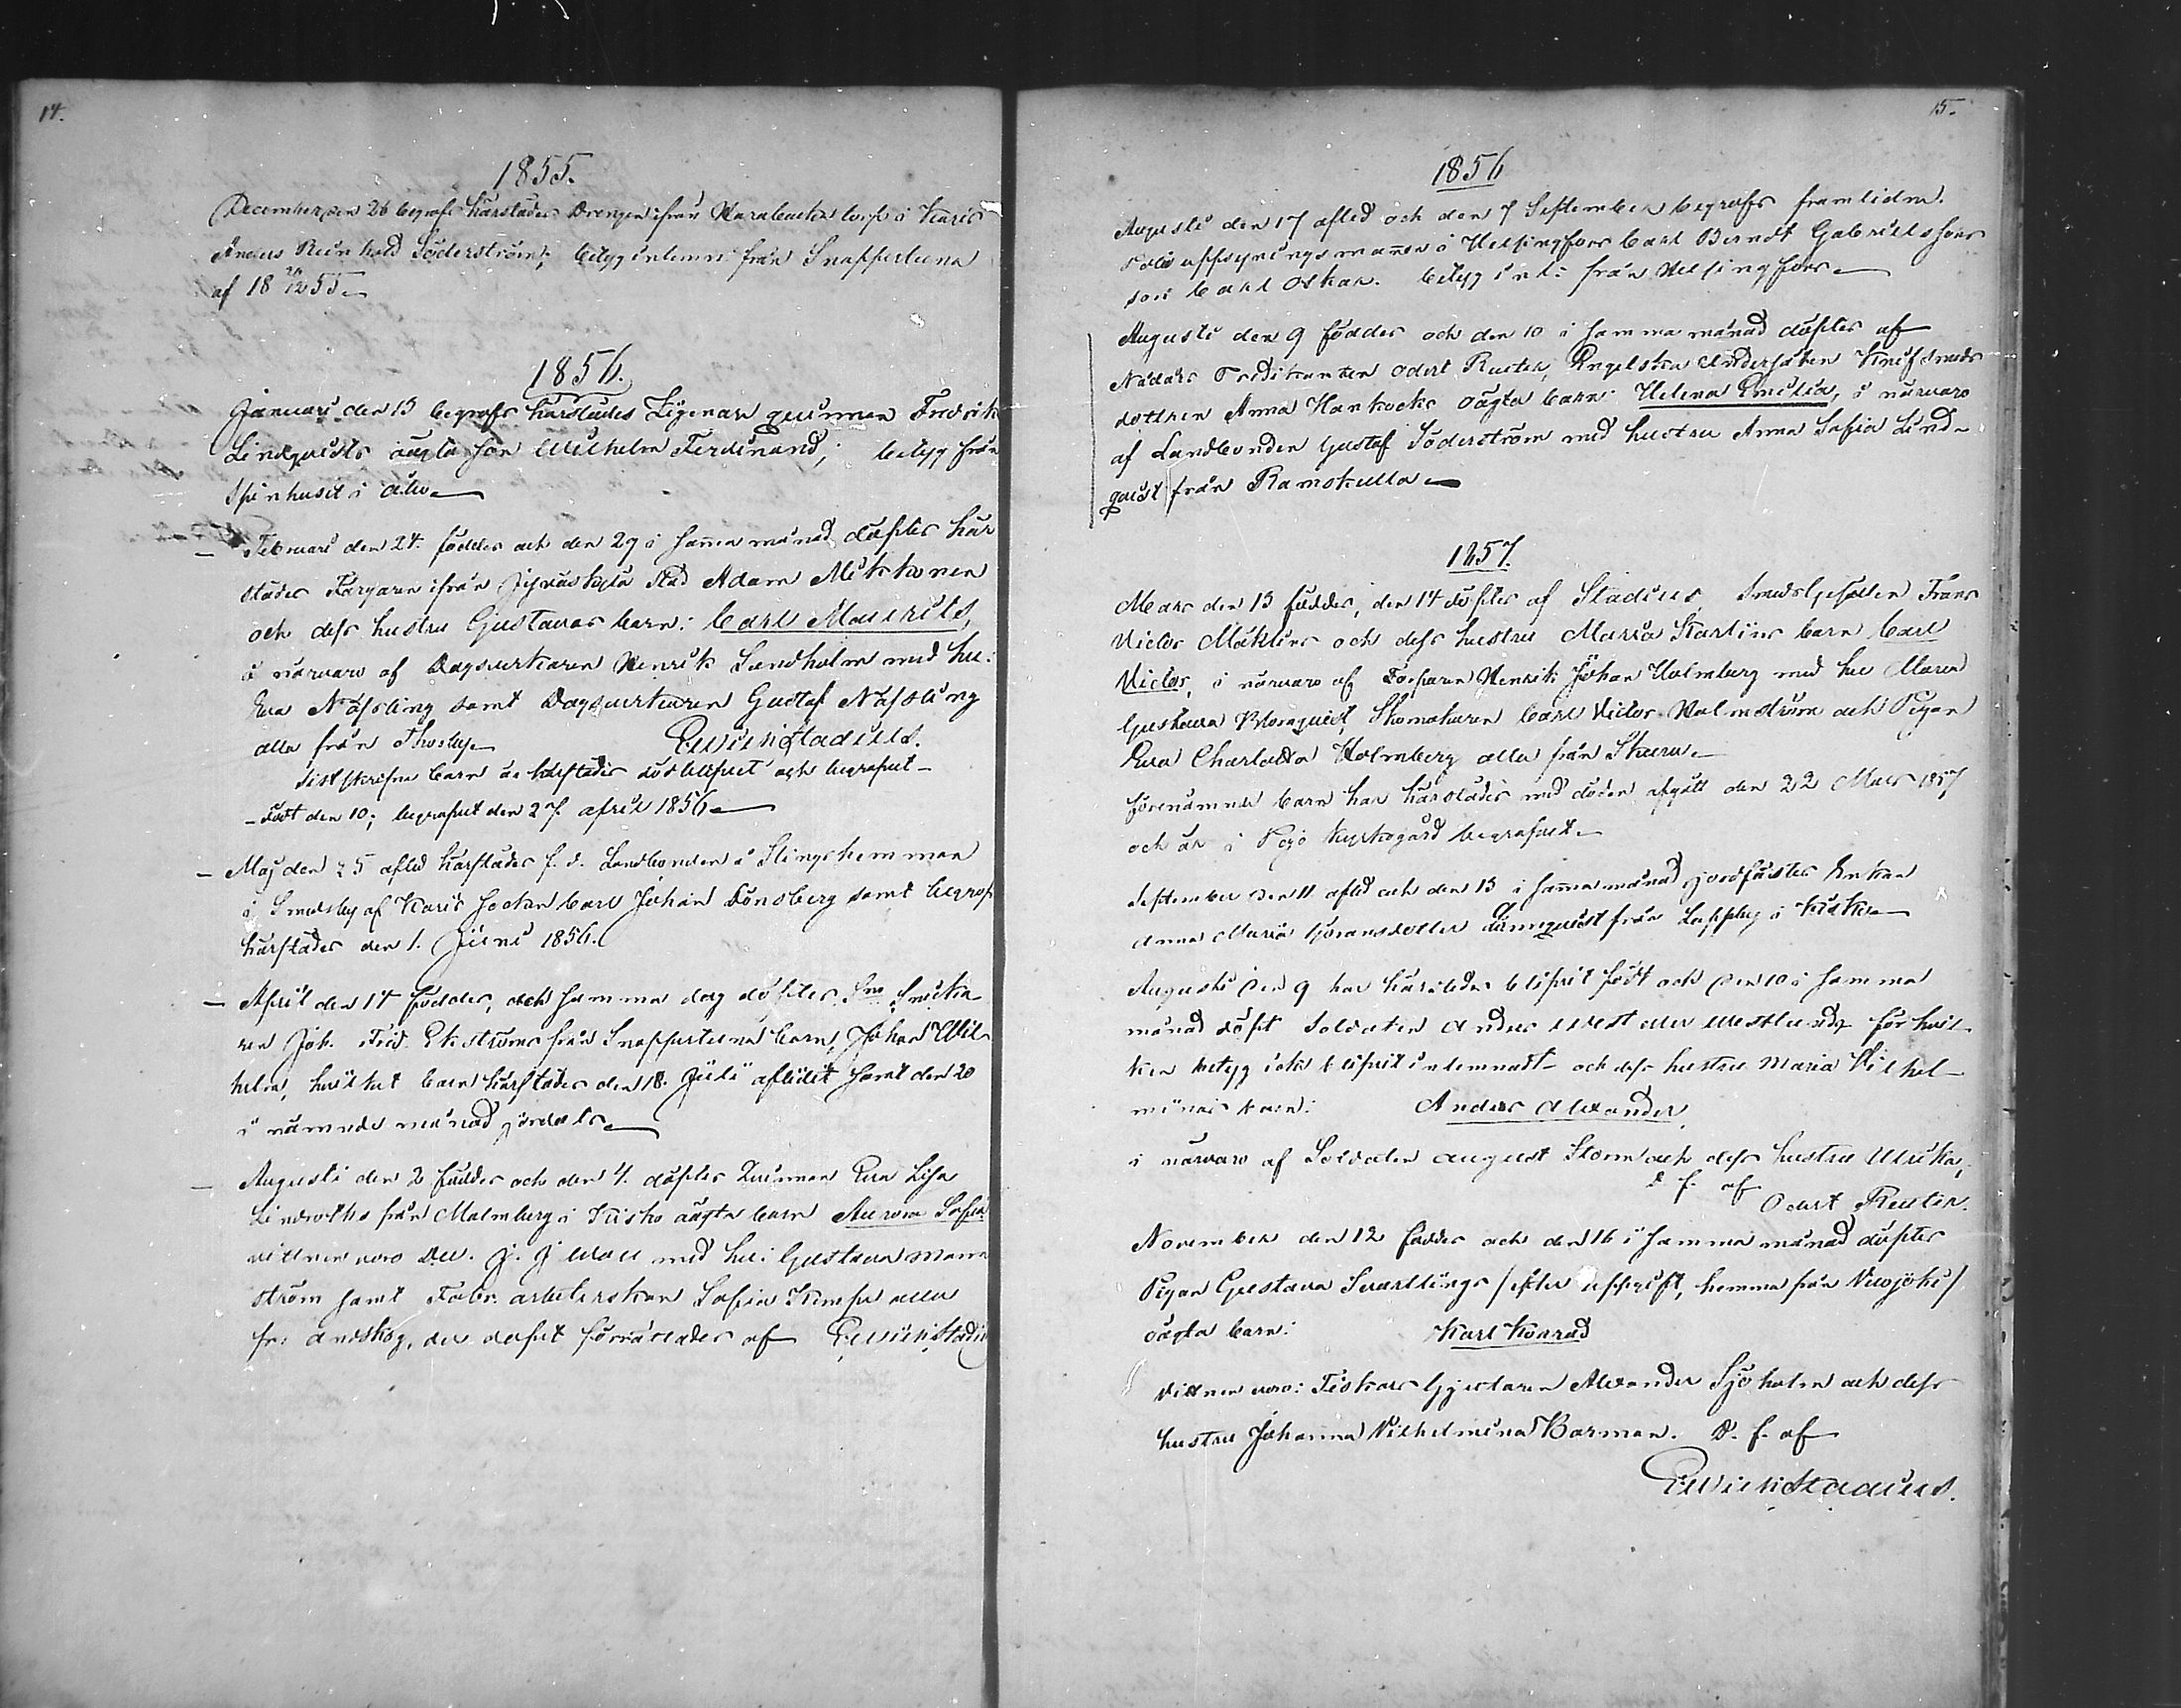 14.
1855.
December den 26 begrofs härstädes Drengen ifrån i Karis
Anders Reinhold Söderström; betyg inlemn: från Snappertuna
af 18 24/12 55
1856.
Januari den 13 begrofs härstädes qvinnan Fredrika
Lindqvists oägta son Wilhelm Ferdinand; betyg från
Spinhuset i Åbo
Februari den 24. föddes och den 29 i samma månad döptes här
städes Färgaren ifrån Jyväskylä stad Adam Mikkonen
och dess hustru Gustavas barn: Carl Maurits,
i närvaro af Dagsverkaren Henrik Sundholm med hu:
Eva Näsling samt Dagsverkaren Gustaf Näsling
alla från Thorby Edvin Stadius.
Sistskrifne barn är härstädes dödt blifvet och begrafvet
Dödt den 10; begrafvet den 27 april 1856
Maj den 25 afled härstädes f. d. Landbonden å Slings hemman
i Smedsby af Karis socken Carl Johan Lönsberg samt begrofs
härstädes den 1. Juni 1856.
April den 14 föddes, och samma dag döptes
ren Joh. Fred. Ekströms från Snappertuna barn, Johan Wil-
helm, hvilket barn härstädes den 18. Juli aflidit samt den 20
i nämnde månad jordats
Augusti den 2 föddes och den 4. döptes Qvinnan Eva Lisa
Lindroths från Malmberg i Kisko oägta barn Aurora Sofia
vittnen voro J. J. med hu: Gustava
ström samt Fabr. arbeterskan Sofia alla
fr: Antskog, der dopet förrättades af Edvin Stadius
15.
1856
Augusti den 17 afled och den 7 September begrofs framlidne
Polis uppsyningsmannen i Helsingfors Carl Berndt Gabrielssons
son Carl Oskar. betyg inl: från Helsingfors
Augusti den 9 föddes och den 10 i samma månad döptes af
Nådårs Predikanten Odert Reuter, Engelska Undersåten Knifsmeds
dottren Anna Hankocks oägta barn: Helena Emilia, i närvaro
af Landbonden Gustaf Söderström med hustru Anna Sofia Lind-
qvist från Ramskulla
1857.
Mars den 13 föddes, den 14 döptes af Stadius, Smedsgesällen Frans
Victor Mäklins och dess hustru Maria Karlins barn Carl
Victor, i närvaro af Torparen Henrik Johan Holmberg med hu Maria
Gustava Blomqvist, Skomakaren Carl Victor Malmström och Pigan
Eva Charlotta Holmberg alla från Skuru
Förenämnde barn har härstädes med döden afgått den 22 Mars 1857
och är i Pojo kyrkogård begrafvet.
September den 11 afled och den 13 i samma månad jordfästes Enkan
Anna Maria Göransdotter Lönnqvist från Lappby i Kisko
Augusti den 9 har härstädes blifvit född och den 10 i samma
månad döpt Soldaten Anders West eller Westlunds för hvil-
ken betyg ick blifvit inlemnadt och dess hustru Maria Vilhel-
minas barn: Anders Alexander,
i närvaro af Soldaten August Storm och dess hustru Ulrika,
d. f. af Odert Reuter.
November den 12 föddes och den 16 i samma månad döptes
Pigan Gustava Svartlings /efter uppgift, hemma från /
oägta barn: Karl Konrad
Vittnen voro: Fiskars Gjutaren Alexander Sjöholm och dess
hustru Johanna Vilhelmina Borman. D. f. af
Edvin Stadius.